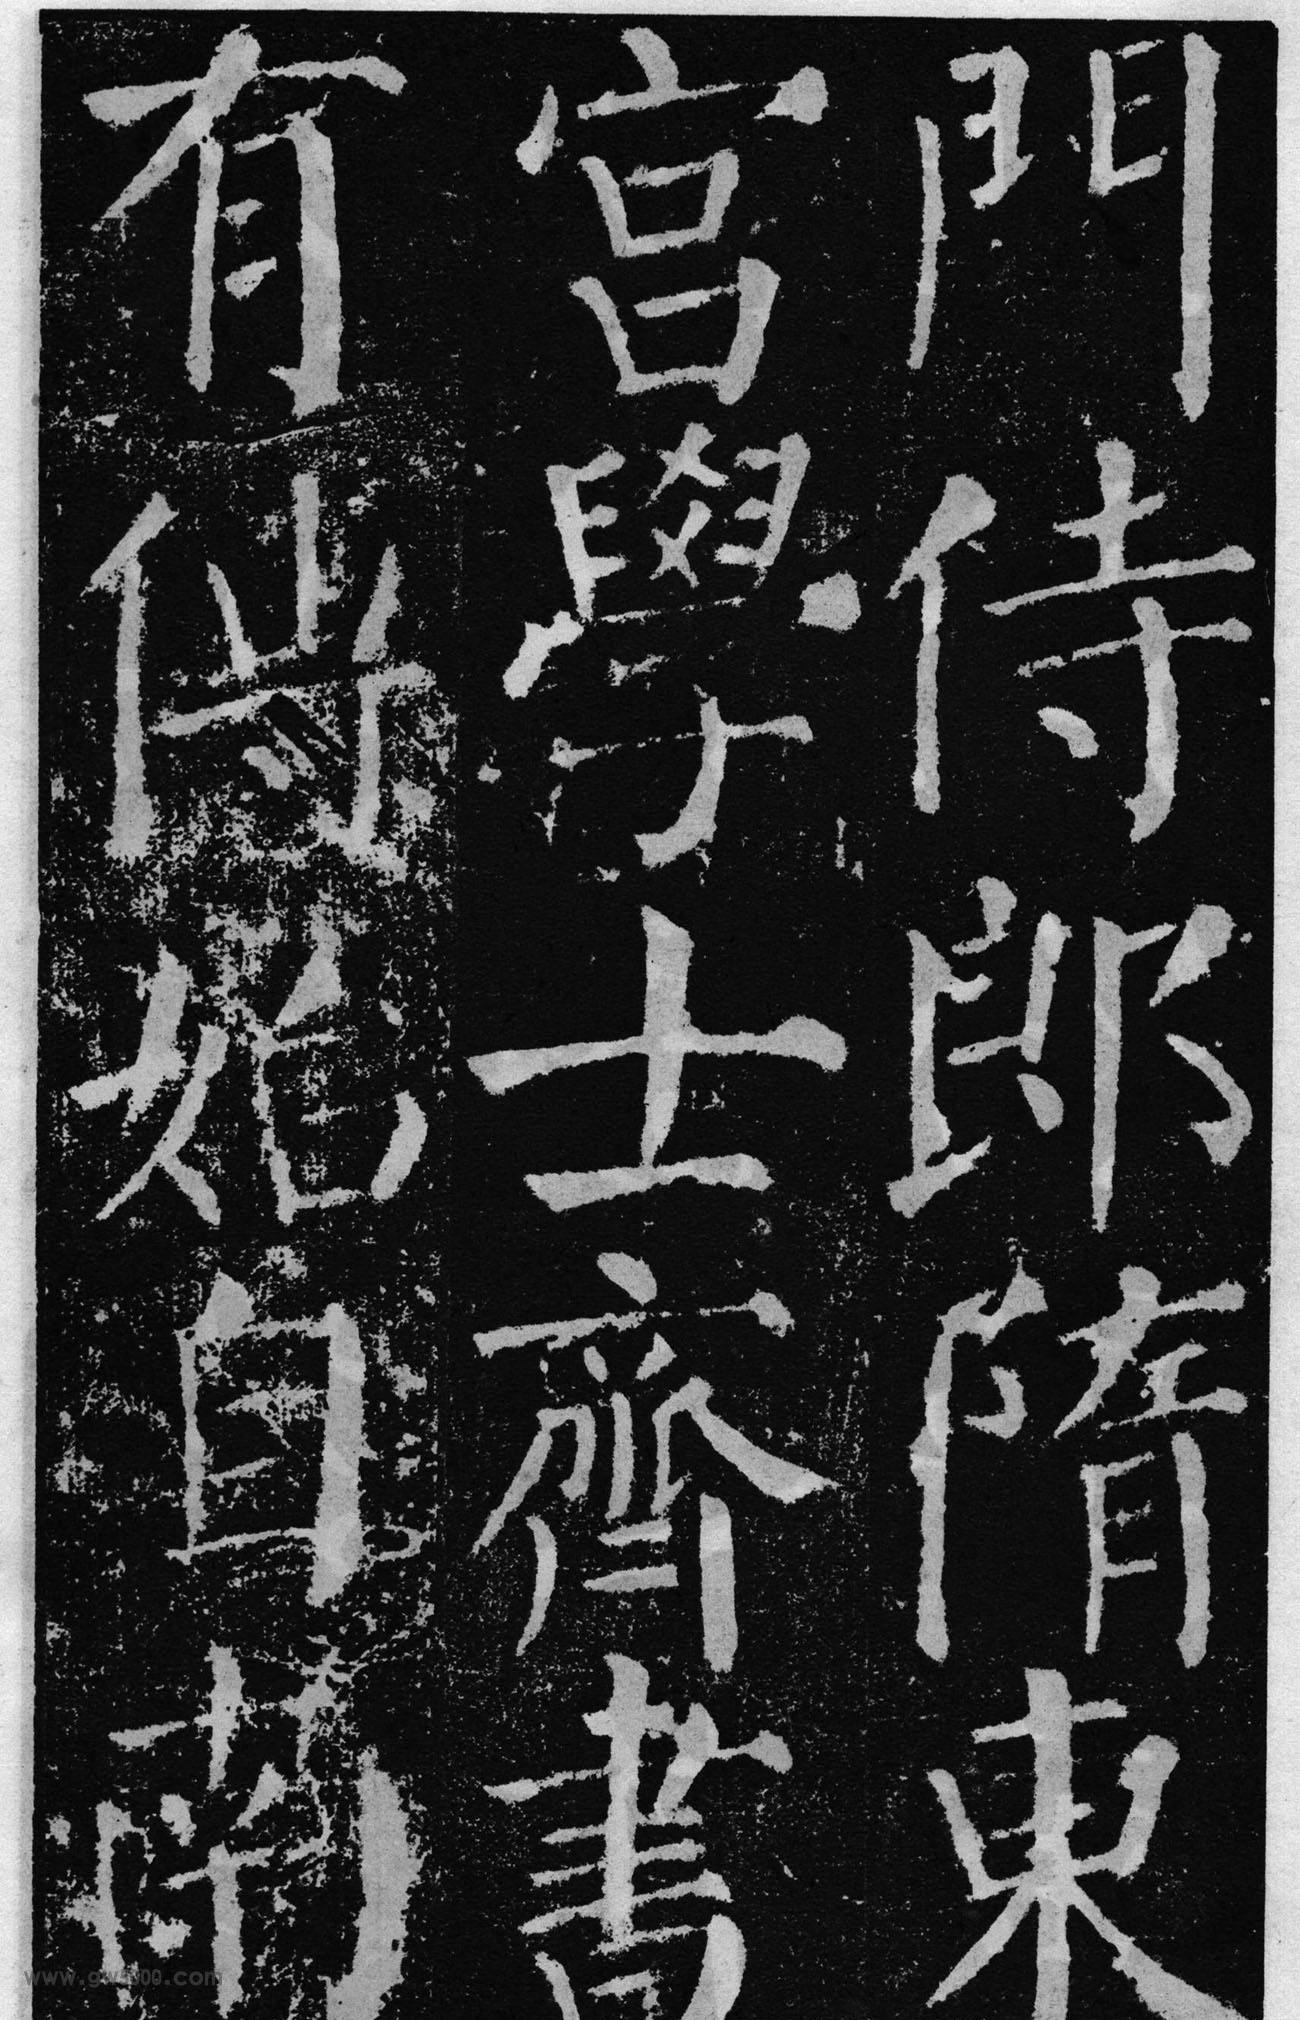 門侍郎隋東
宮學士齊書
有尚始自南
www.gw500.com